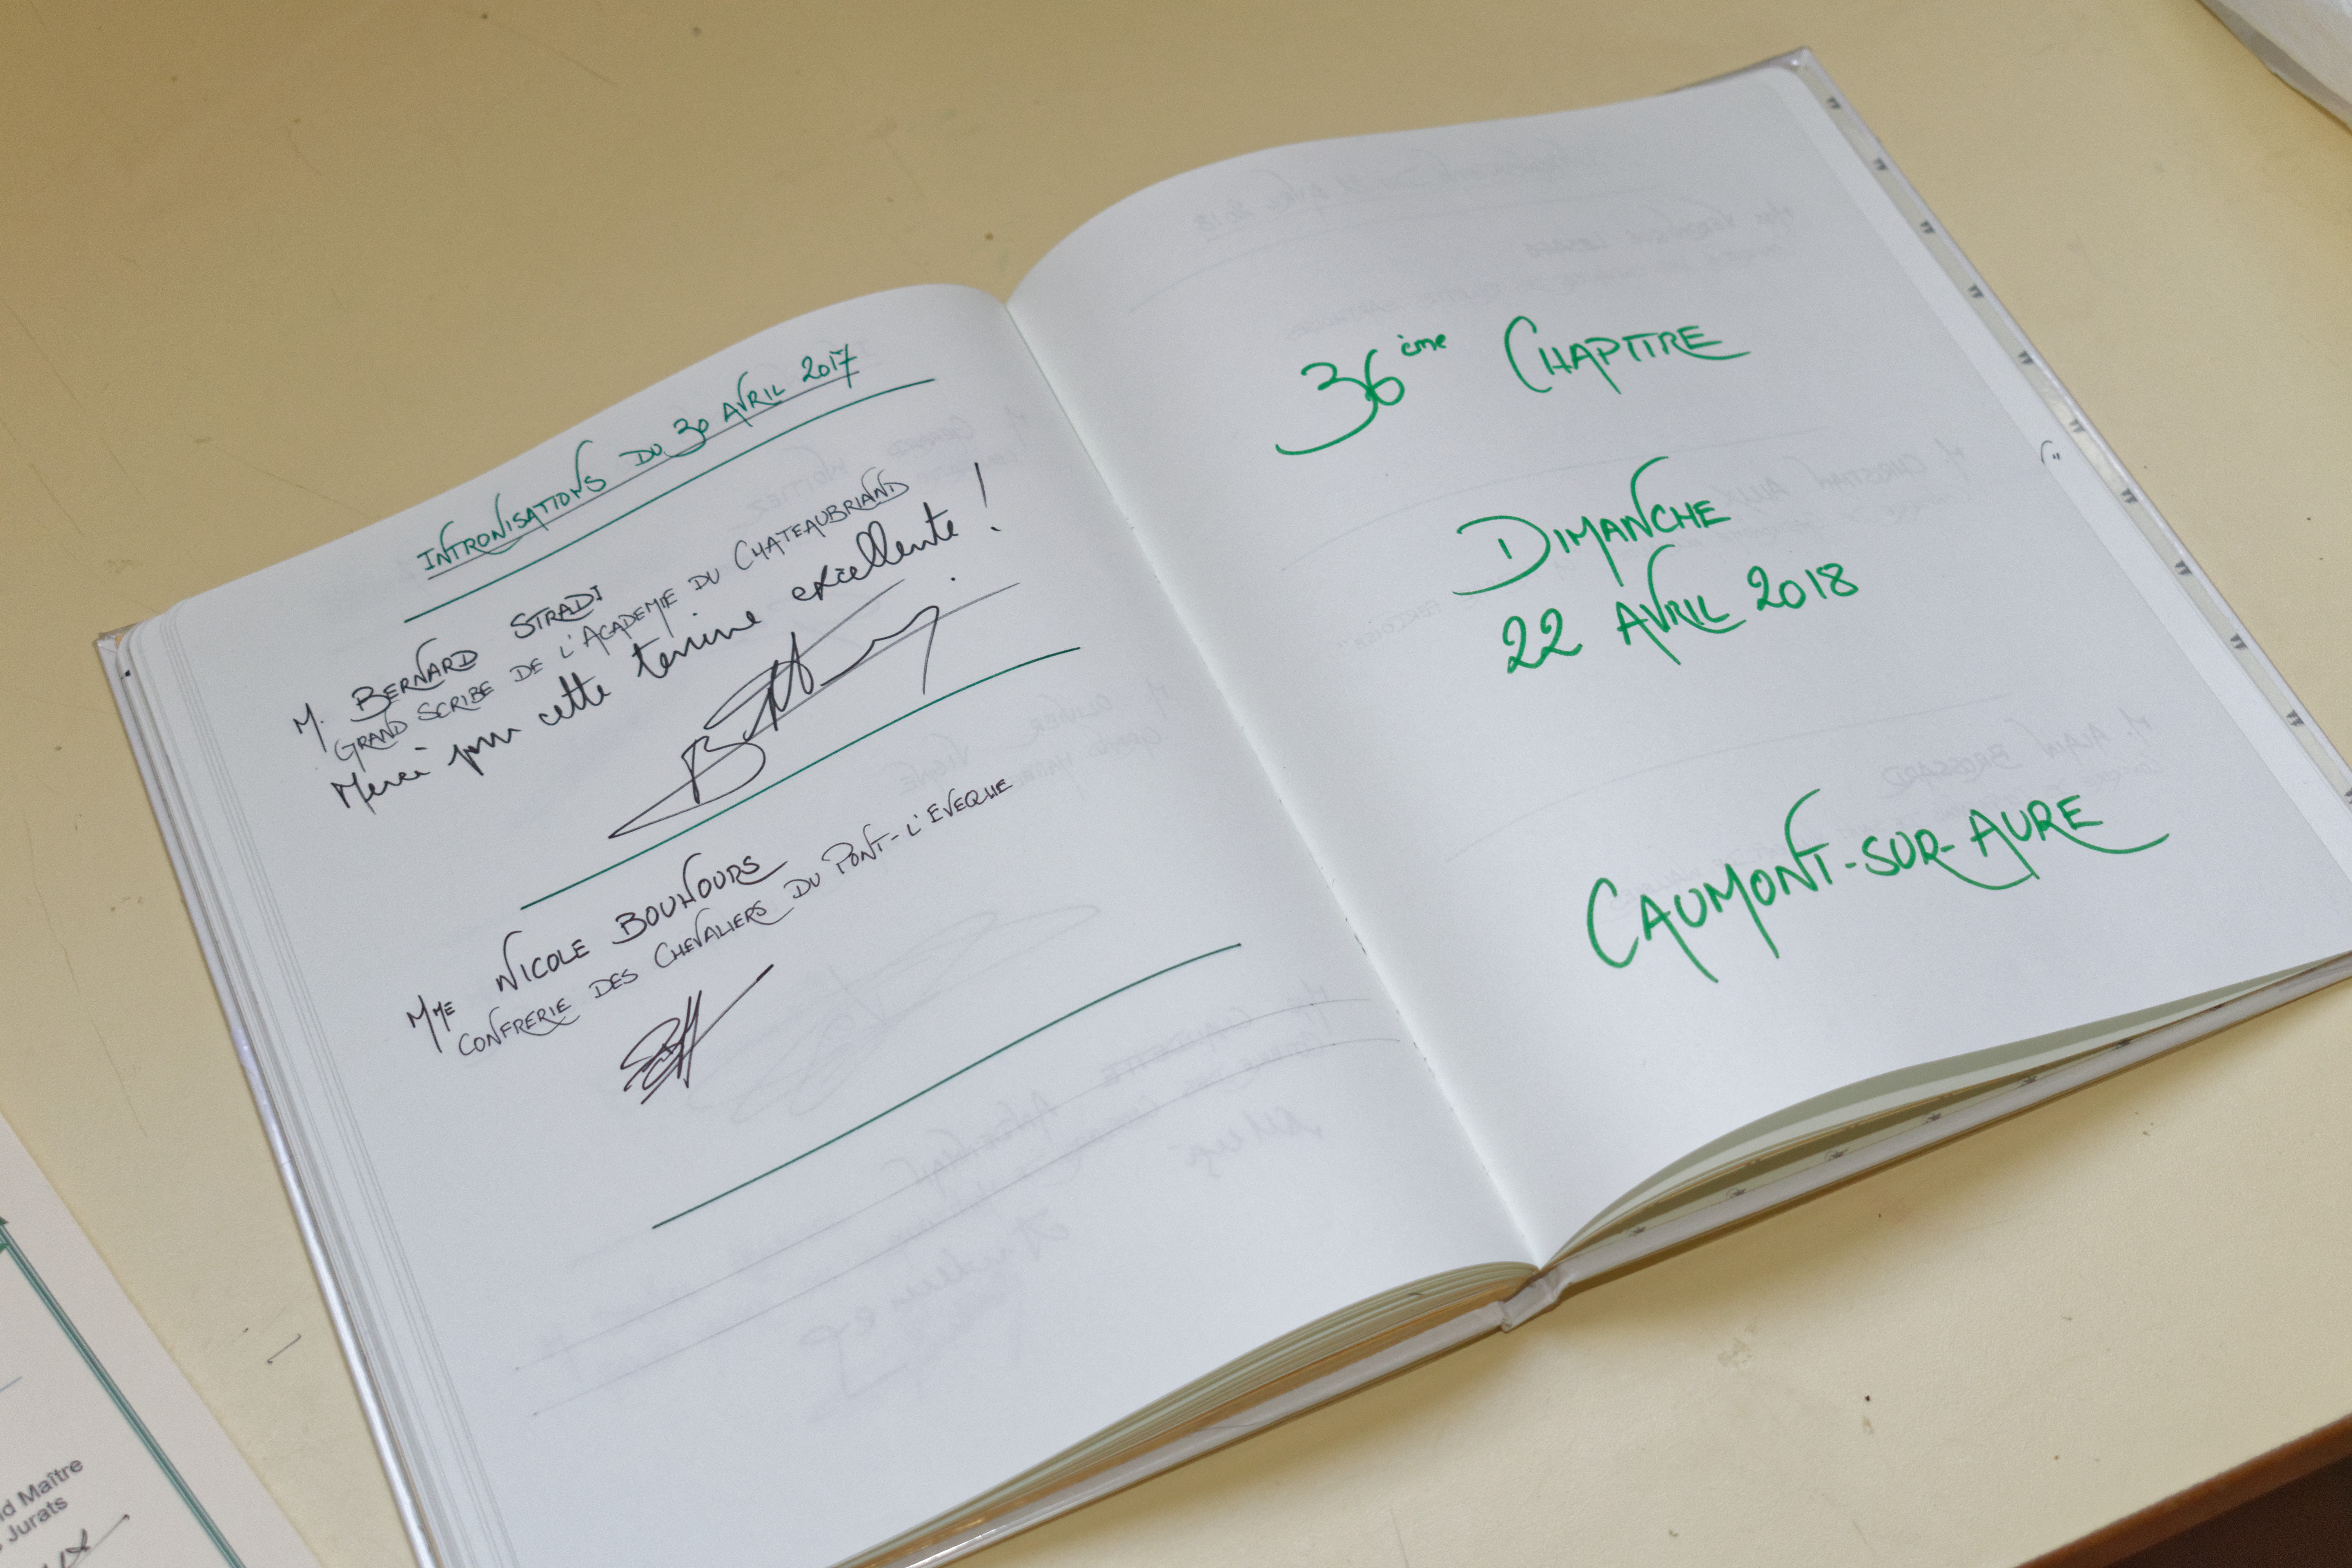 INTRONISATIONS DU 30 AVRIL 2017
M. BERNARD STRADI
GRAND SCRIBE DE L'ACADEMIE DU CHATEAUBRIAND
Merci pour cette terrine excellente !
MME NICOLE BOUNOURS
CONFRERIE DES CHEVALIERS DU PONT-L'EVEQUE
36ème CHAPITRE
DIMANCHE
22 AVRIL 2018
CAUMONT-SUR-AURE
d Maître
Jurats